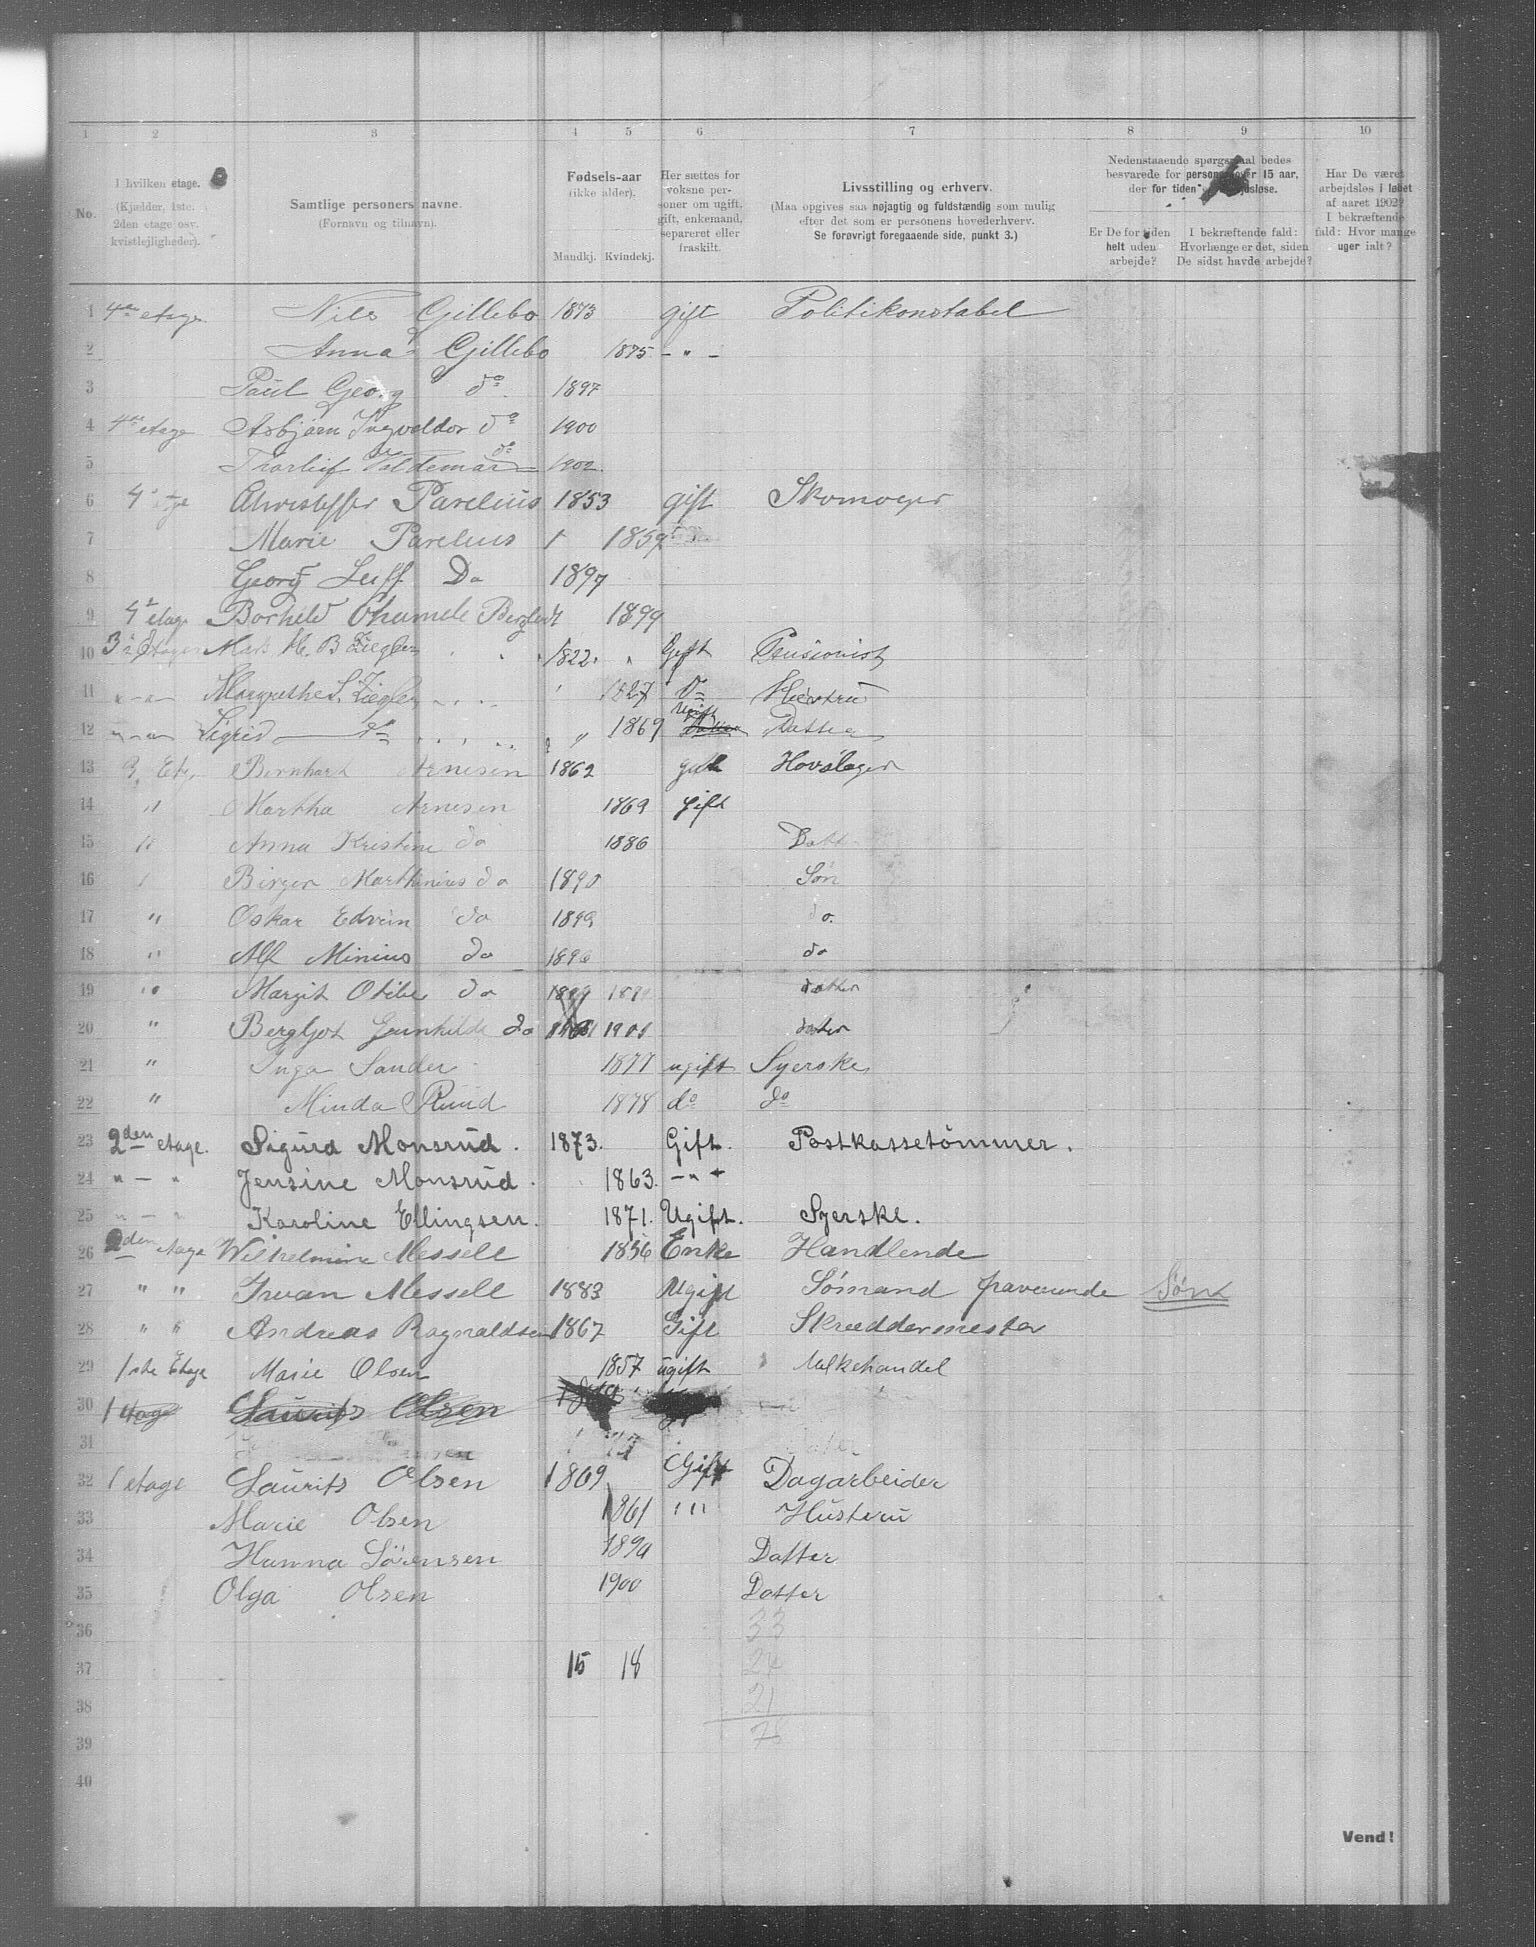 1 2 3 4 5 6 7 8 9 10
No.
I hvilken etage.
(Kjælder, 1ste. 2den etage osv. kvistlejligheder).
Samtlige personers navne.
(Fornavn og tilnavn).
Fødsels-aar
(ikke alder).
Mandkj. Kvindekj.
Her sættes for voksne personer om ugift, gift, enkemand, separeret eller fraskilt.
Livsstilling og erhverv.
(Maa opgives saa nøjagtig og fuldstændig som mulig efter det som er personens hovederhverv.
Se forøvrigt foregaaende side, punkt 3.)
Nedenstaaende spørgsmaal bedes besvarede for personer over 15 aar, der for tiden
Er De for tiden helt uden arbejde?
I bekræftende fald: Hvorlænge er det, siden De sidst havde arbejde?
Har De været arbejdsløs i løbet af aaret 1902? I bekræftende fald: Hvor mange uger ialt?
1 4de etage Nils Gillebo 1873 gift Politikonstabel
2 Anna Gillebo 1875 - " -
3 Paul Georg do. 1897
4 4de etage Asbjørn Ingveldor do 1900
5 Thorleif Valdemar do 1902
6 Parelius 1853 gift Skomager
7 Marie Parelius 1859
8 Georg Leif Do 1897
9 4de etage Borhild 1899
10 3 Etage H. B Ziegler 1822 Gift Pensionist
11 " - " Margrethe S. Ziegler 1827 Do Hustru
12 " - " Sigrid do 1869 Ugift Datter
13 3 Etg. Bernhart Arnesen 1862 gift Hovslager
14 " Martha Arnesen 1869 gift
15 " Anna Kristine do 1886 Datt
16 Birger Marthinius do 1890 Søn
17 " Oskar Edvin do 1899 do.
18 " Alf Minius do 1896 do
19 " Margit Otilie do 1899 189 datter
20 " Bergljot Gunhilde do 1901 dater
21 " Inga Sander 1877 ugift Syerske
22 " Minda Ruud 1878 do do
23 2den etage. Sigurd Monsrud. 1873. Gift. Postkassetömmer.
24 " - " Jensine Monsrud. 1863. - " -
25 " - " Karoline Ellingsen. 1871. Ugift. Syerske.
26 2den etage Wilhelmine Messell 1856 Enke Handlende
27 " " Iwan Messell 1883 Ugift Sömand fraværende Sönn
28 " " Andreas Ragnaldsen 1867 Gift Skræddermester
29 1ste Etage Marie Olsen 1857 ugift Mælkehandel
30 1 etage Laurits Olsen
31
32 1 etage Laurits Olsen 1869 Gift Dagarbeider
33 Marie Olsen 1861 " " Husteru
34 Hanna Sörensen 189 Datter
35 Olga Olsen 1900 Datter
36 33
37 15 18 24
38 21
39 78
40
Vend!